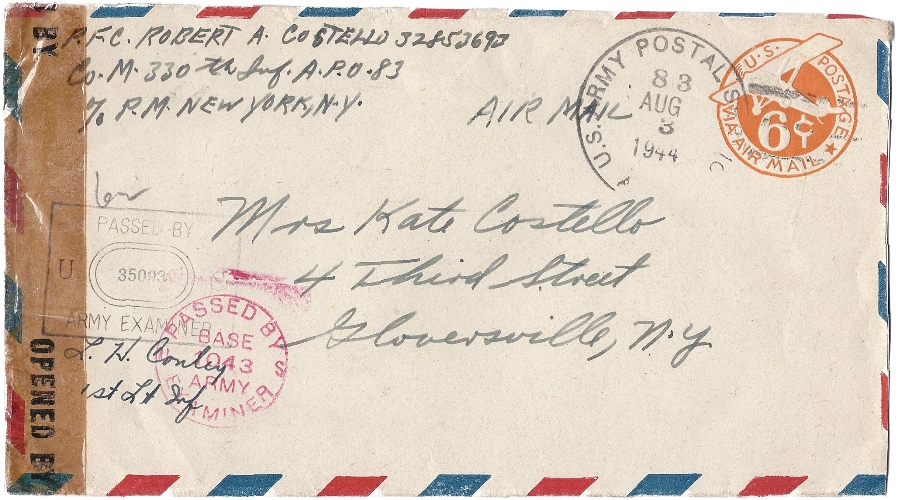 P.F.C. ROBERT A. COSTELLO 32853693
Co. M. 330th Inf. A.P.O. 83
% P.M. NEW YORK, N.Y.
AIR MAIL
U.S. ARMY POSTAL
83
AUG
3
1944
U.S. POSTAGE
6¢
VIA AIR MAIL
Mrs Kate Costello
4 Third Street
Gloversville, N.Y
PASSED BY
U
35093
ARMY EXAMINER
PASSED BY
BASE
1043
ARMY
EXAMINER
L. H. Conley
1st Lt Inf
BY
OPENED BY